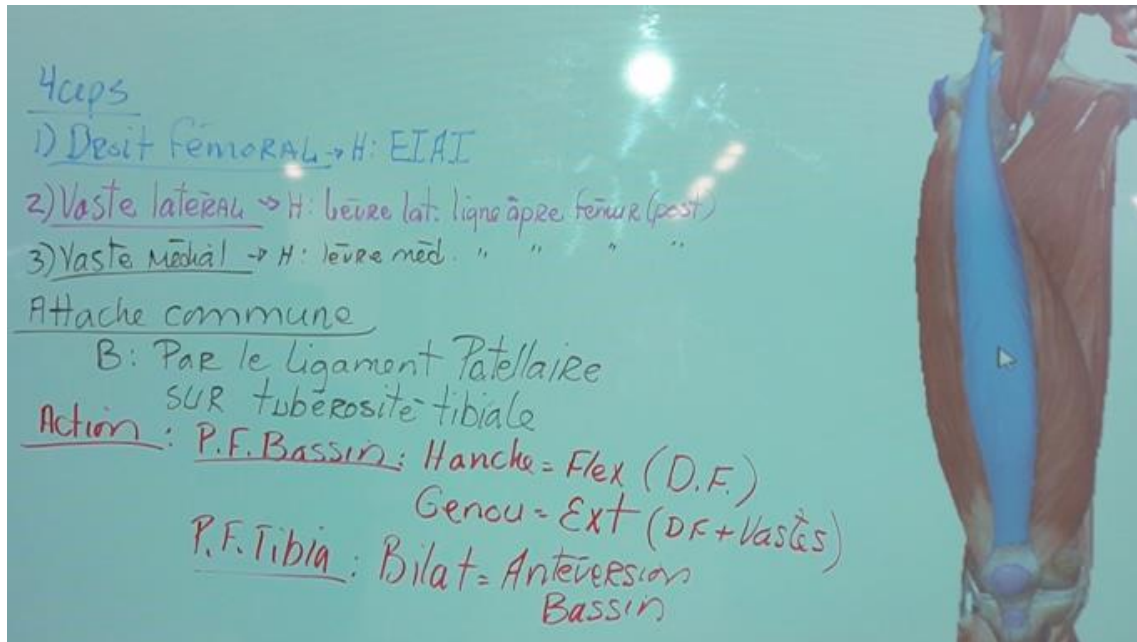 4ceps
1) Droit fémoral → H: EIAI
2) Vaste latéral → H: lèvre lat. ligne âpre fémur (post)
3) Vaste Médial → H: lèvre méd. " " " "
Attache commune
B: Par le ligament Patellaire
SUR tubérosité tibiale
Action : P.F. Bassin : Hanche = Flex (D.F.)
Genou = Ext (DF + Vastes)
P.F. Tibia : Bilat = Antéversion
Bassin